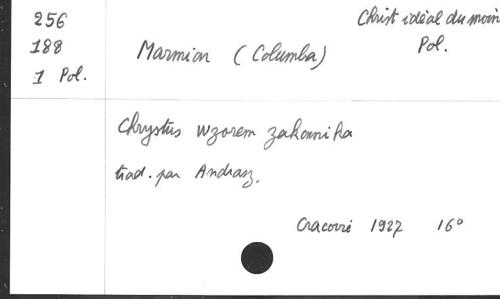 256
188
1 Pol.
Christ idéal du moin
Pol.
Marmion (Columba)
Chrystus wzorem zakonnika
trad. par Andrasz.
Cracovie 1927 16°